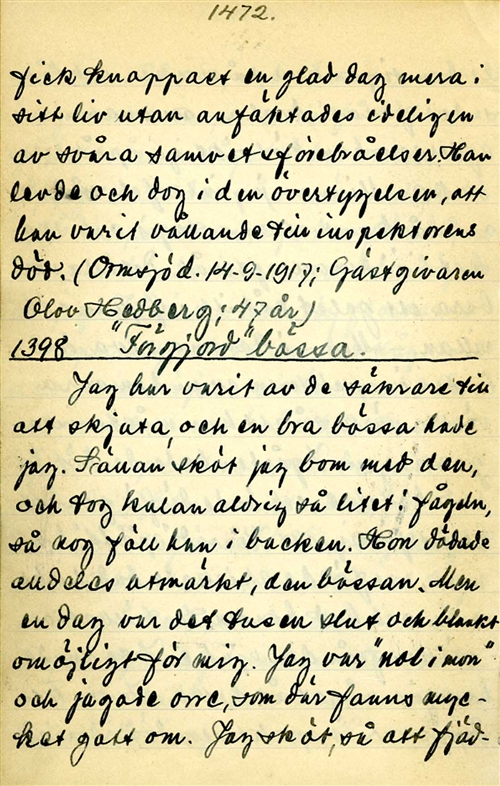 1472.
fick knappast en glad dag mera i
sitt liv utan anfäktades ideligen
av svåra samvetsförebråelser. Han
levde och dog i den övertygelsen, att
han varit vållande till inspektorens
död. (Ormsjö d. 14-9-1917; Gästgivaren
Olov Hedberg; 47 år)
1398 "Förgjord" bössa.
Jag har varit av de säkrare till
att skjuta, och en bra bössa hade
jag. Sällan sköt jag bom med den,
och tog kulan aldrig så litet i fågeln,
så nog föll han i backen. Hon dödade
alldeles utmärkt, den bössan. Men
en dag var det tusen slut och blankt
omöjligt för mig. Jag var "nol i mon"
och jagade orre, som där fanns myc-
ket gott om. Jag sköt, så att fjäd-